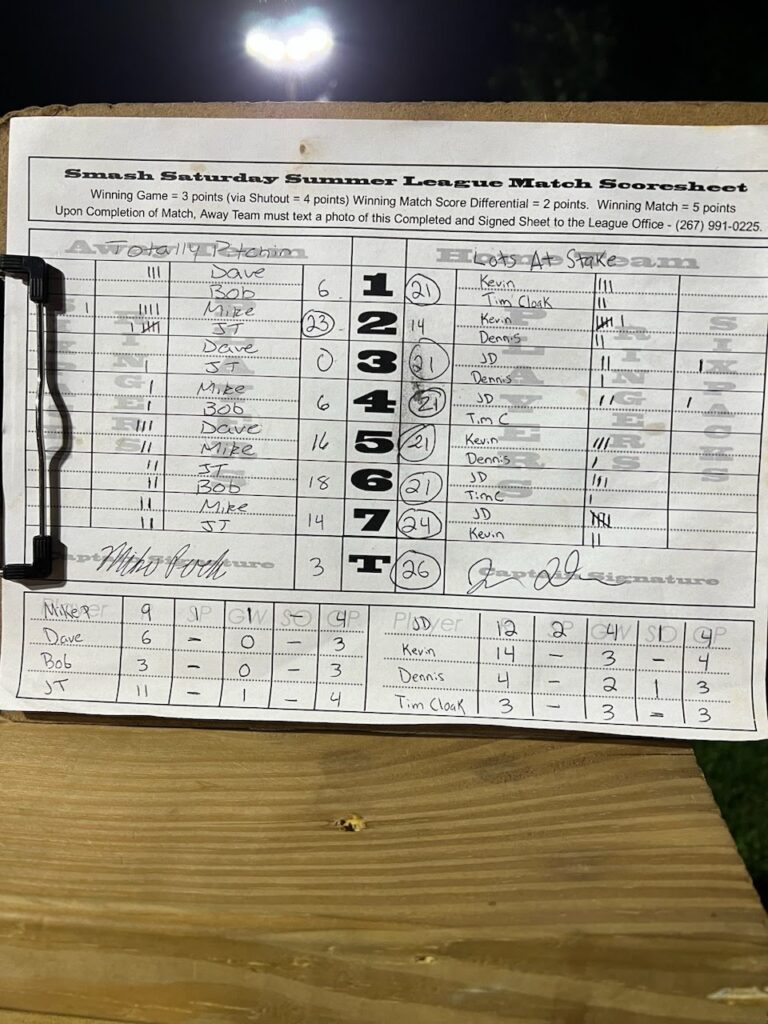 Smash Saturday Summer League Match Scoresheet
Winning Game = 3 points (via Shutout = 4 points) Winning Match Score Differential = 2 points. Winning Match = 5 points
Upon Completion of Match, Away Team must text a photo of this Completed and Signed Sheet to the League Office - (267) 991-0225.
Totally Pitchin Lots At Stake
Dave 6 1 21 Kevin
Bob Tim Cloak
Mike 23 2 14 Kevin
JT Dennis
Dave 0 3 21 JD
JT Dennis
Mike 6 4 21 JD
Bob Tim C
Dave 16 5 21 Kevin
Mike Dennis
JT 18 6 21 JD
Bob Tim C
Mike 14 7 24 JD
JT Kevin
Captain Signature 3 T 26 Captain Signature
Player SP GW SO GP Player SP GW SO GP
Mike P 9 1 1 - 4 JD 12 2 4 1 4
Dave 6 - 0 - 3 Kevin 14 - 3 - 4
Bob 3 - 0 - 3 Dennis 4 - 2 1 3
JT 11 - 1 - 4 Tim Cloak 3 - 3 - 3